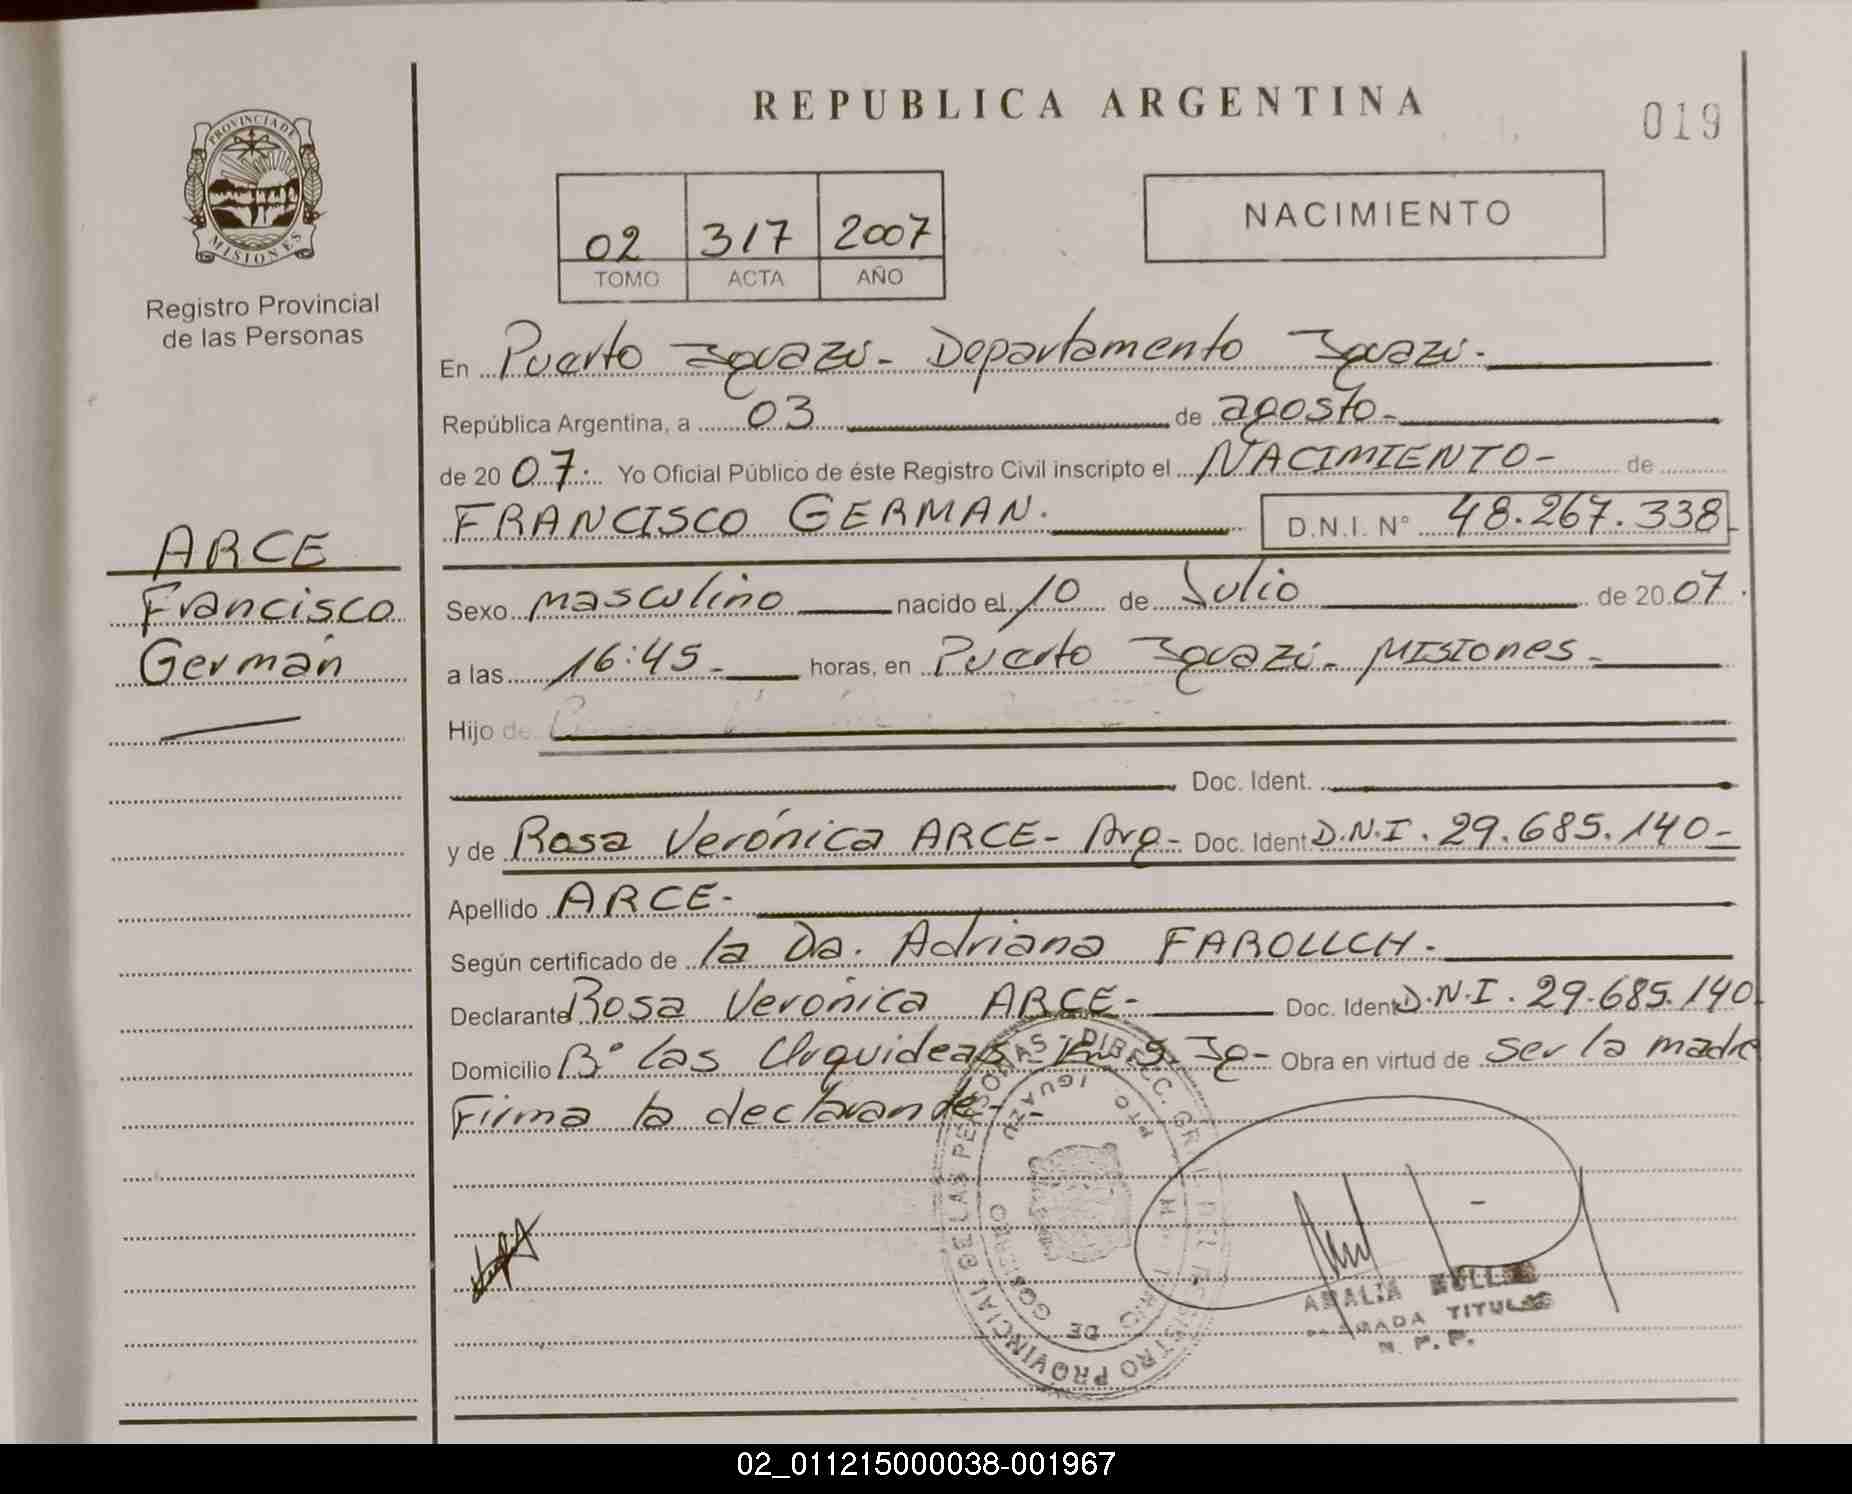 REPUBLICA ARGENTINA
019
PROVINCIA DE
MISIONES
Registro Provincial
de las Personas
02 317 2007
TOMO ACTA AÑO
NACIMIENTO
En Puerto Iguazú - Departamento Iguazú -
República Argentina, a 03 de agosto -
de 20 07. Yo Oficial Público de éste Registro Civil inscripto el NACIMIENTO - de
FRANCISCO GERMAN. D.N.I. N° 48.267.338
ARCE
Francisco
Germán
Sexo masculino nacido el 10 de Julio de 20 07.
a las 16:45 - horas, en Puerto Iguazú - MISIONES -
Hijo de
Doc. Ident.
y de Rosa Verónica ARCE - Arg - Doc. Ident D.N.I. 29.685.140 -
Apellido ARCE -
Según certificado de la Da. Adriana
Declarante Rosa Verónica ARCE - Doc. Ident D.N.I. 29.685.140
Domicilio B° las Orquideas - Km 5 - Ig - Obra en virtud de ser la madre
Firma la declarante -
DIRECC. GRAL. DEL REGISTRO PROVINCIAL DE LAS PERSONAS
PTO IGUAZU
GOBIERNO
AMALIA
TITULAR
02_011215000038-001967